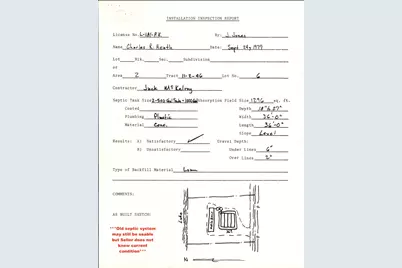 INSTALLATION INSPECTION REPORT
License No. By: J. Jones
Name Charles R. Heath Date: Sept. 24, 1979
Lot Blk. Sec. Subdivision
or
Area 2 Tract 11-2-46 Lot No. 6
Contractor Jack McKelroy
Septic Tank Size Absorption Field Size 1296 sq. ft.
Depth
Plumbing Plastic Width 36'-0"
Material Conc. Length 36'-0"
Slope Level
Results: A) Satisfactory Gravel Depth:
B) Unsatisfactory Under Lines 6"
Over Lines 2"
Type of Backfill Material Loam
COMMENTS:
AS BUILT SKETCH:
***Old septic system
may still be usable
but Seller does not
know current
condition***